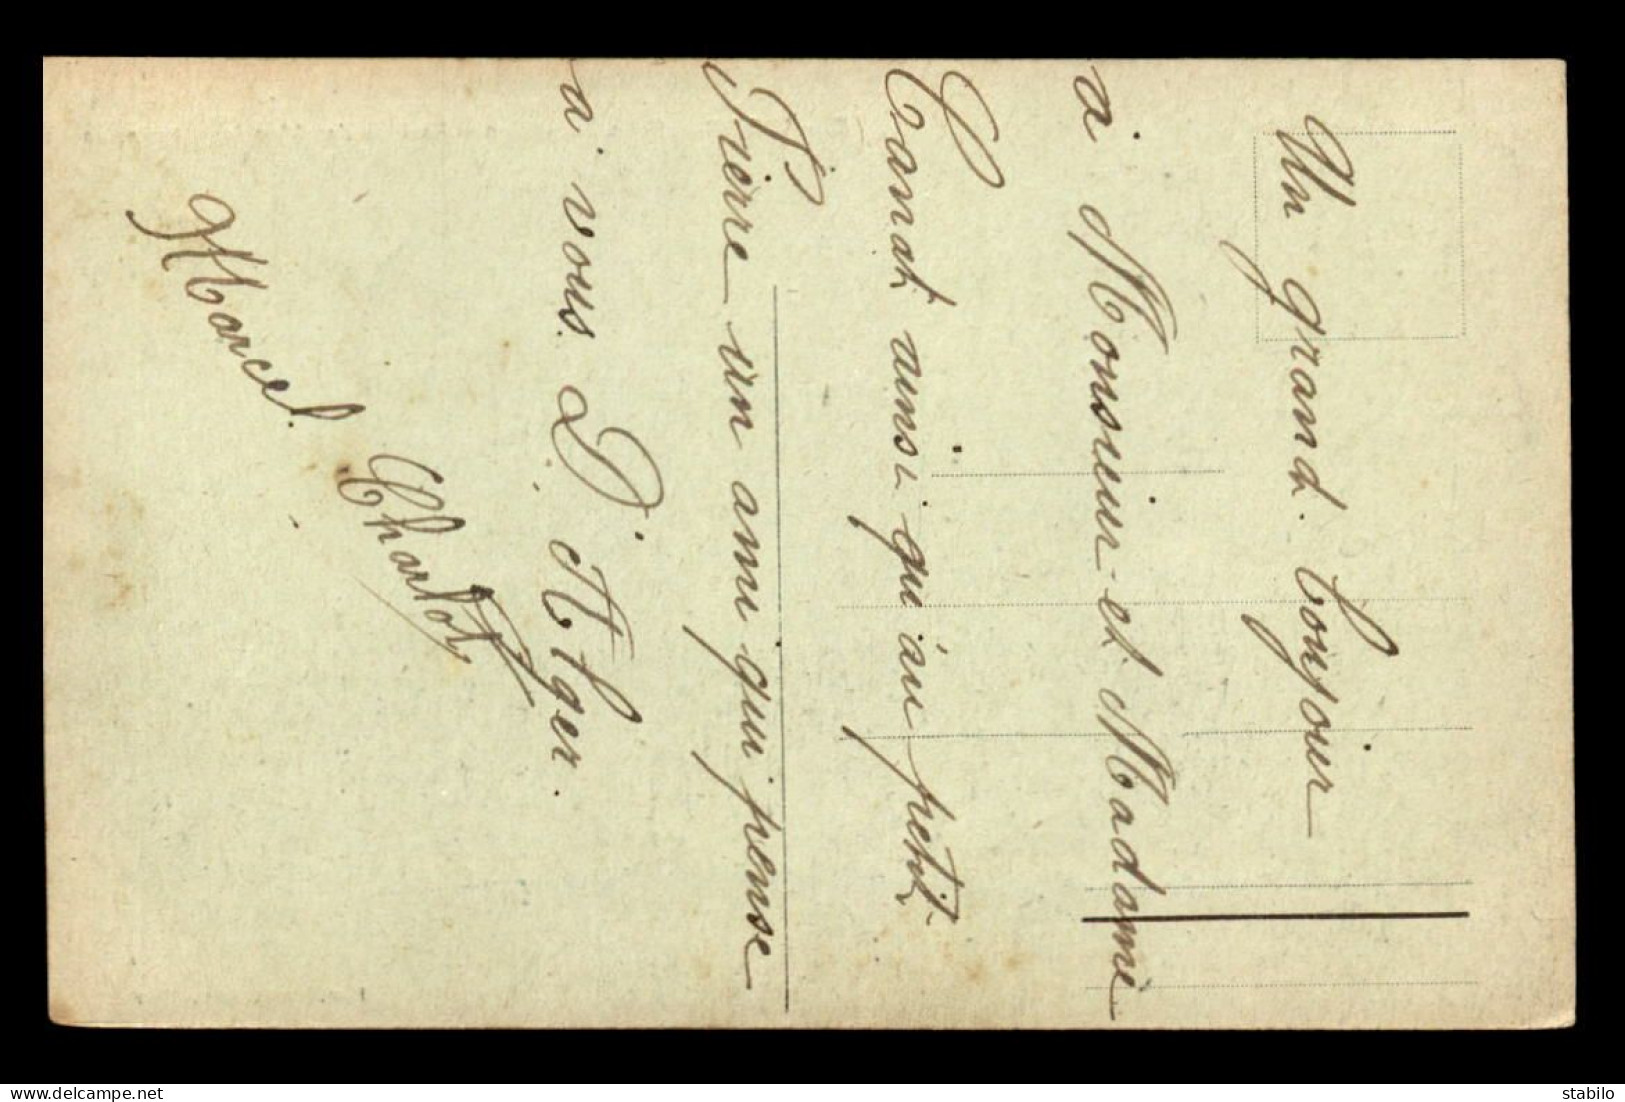 Un grand. bonjour
à Monsieur et Madame
Canat ainsi qu'au petit
Pierre un ami qui pense
à vous D'Alger.
Marcel Charlot
stabilo